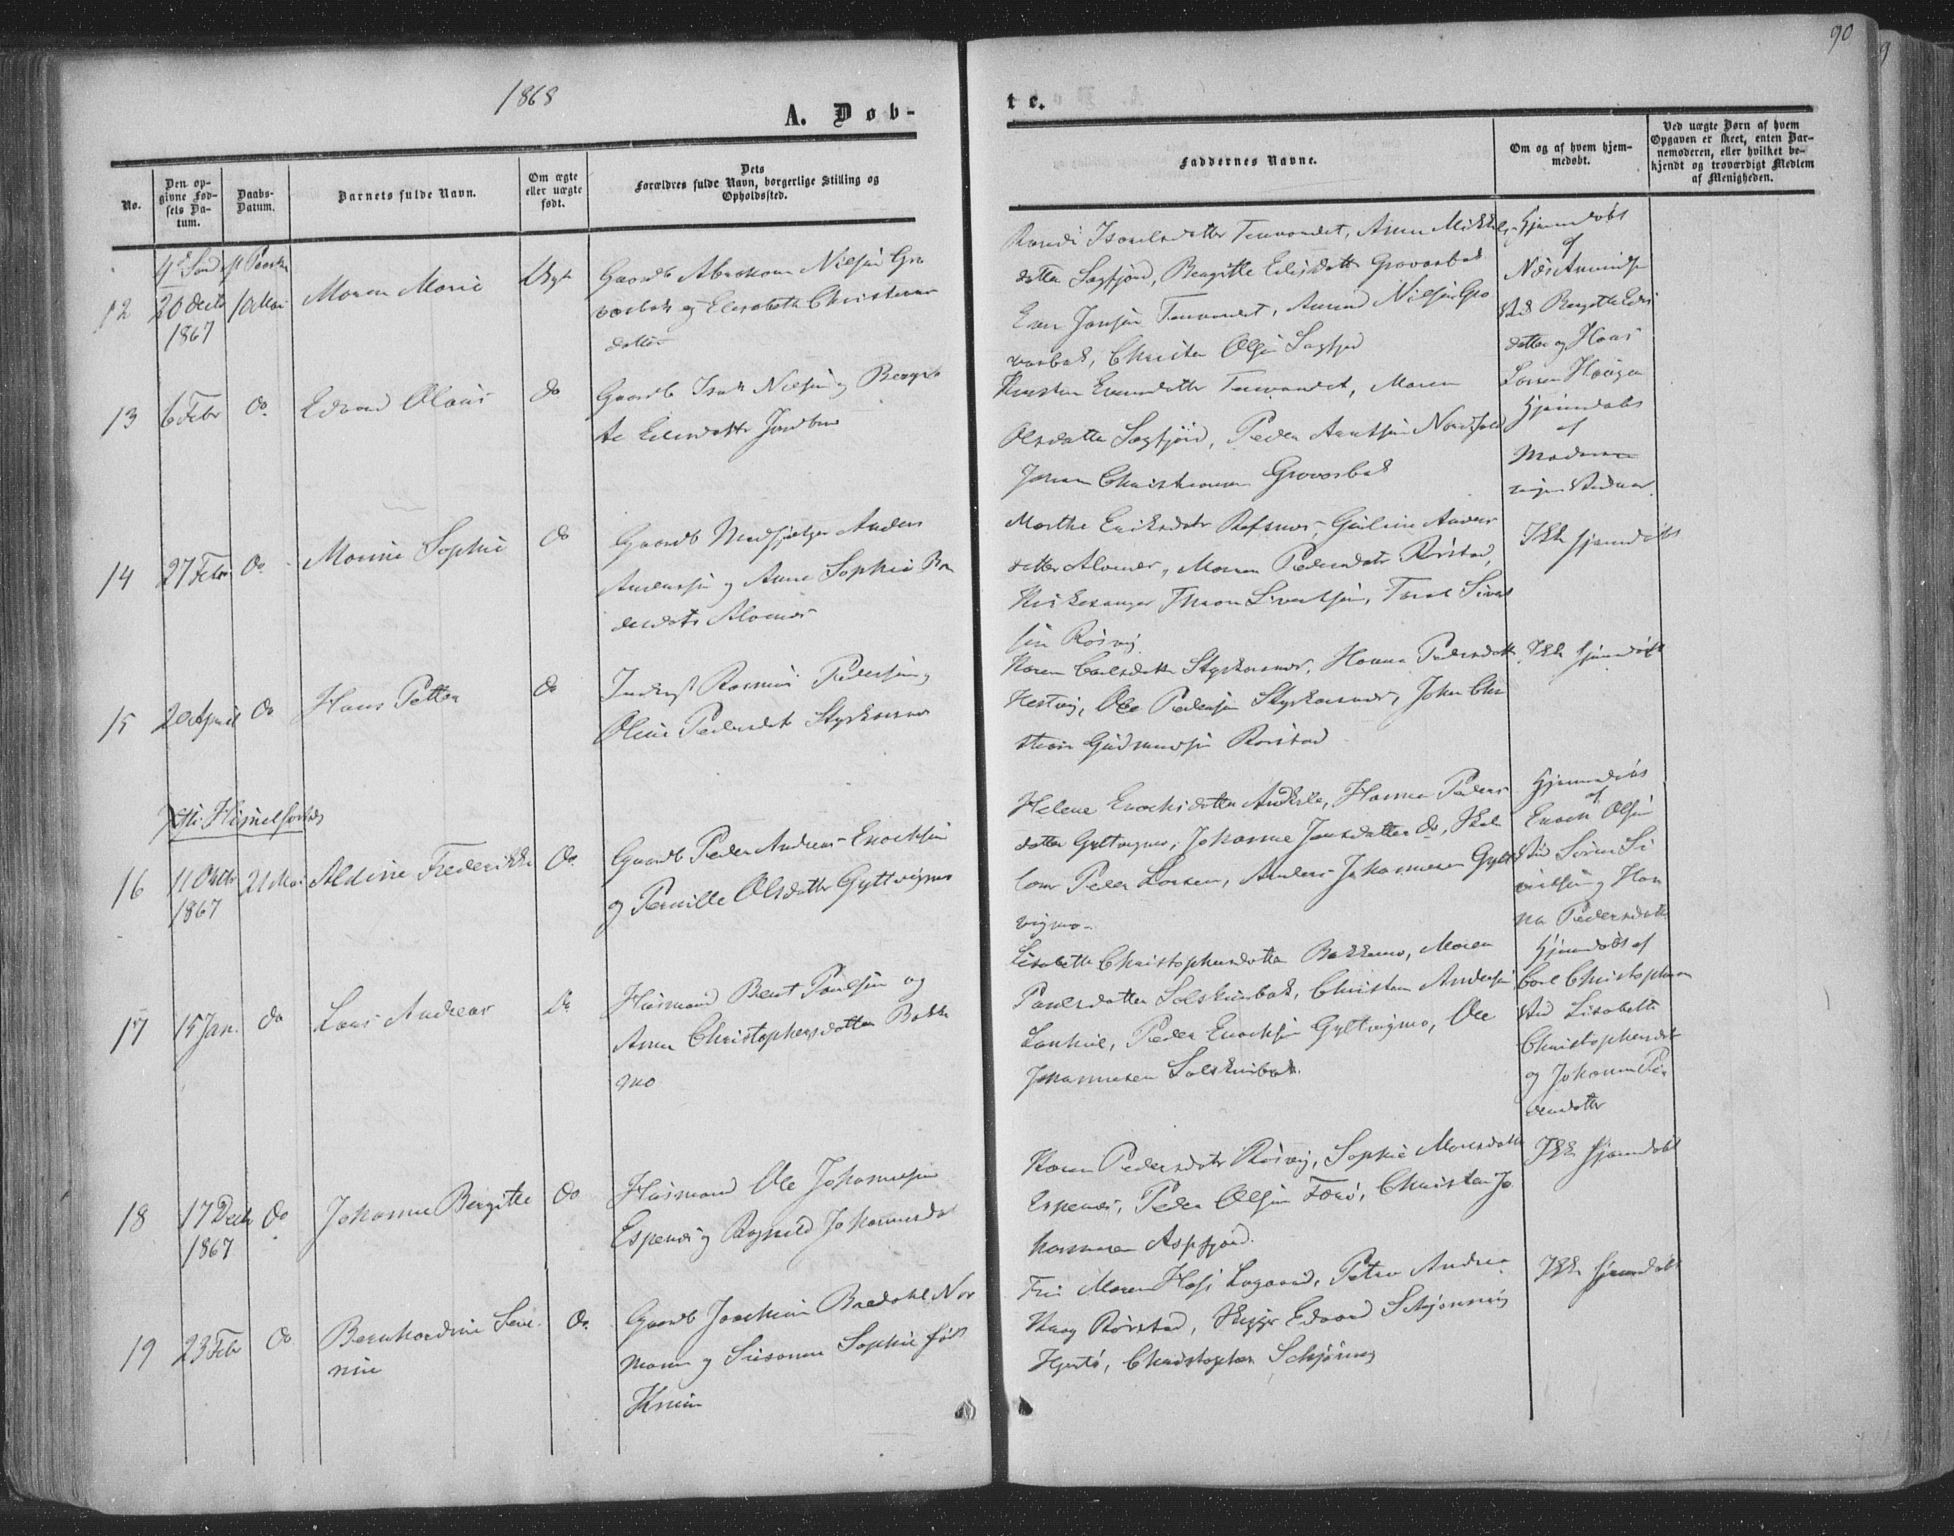 1868
90
A. Døb-
te.
No.
Den op-
givne Fød-
sels Da-
tum.
Daabs-
Datum.
Barnets fulde Navn.
Om ægte
eller uægte
født.
Dets
Forældres fulde Navn, borgerlige Stilling og
Opholdssted.
Faddernes Navne.
Om og af hvem hjem-
medøbt.
Ved uægte Børn af hvem
Opgaven er skeet, enten Bar-
nemoderen, eller hvilket be-
kjendt og troværdigt Medlem
af Menigheden.
4de Sønd p Paaske
12
20 Decbr
1867
10 Mai
Maren Marie
Ægt
Gaardb Abraham Nilsen Gro
varbak og Elisabeth Christians
datter
Israelsdatter Tenvandet, Anna Mikkels
datter Sagfjord, Bergitte Edisdatter Grovarbak
Jansen Tenvandet, Nilsen Gro
varbak, Christen Olsen Sagfjord
Hjemdøbt
af
Nils Amundsen
Ved Bergithe Edis
datter og Hans
Larsen Haugen
13
6 Febr
do
Edvard Olaus
do
Gaardb Isak Nilsen og Bergit
te Edisdatter
Tenvandet, Maren
Olsdatter Sagfjord, Peder Arntsen Nordfold
Johan Christiansen Grovarbak
Hjemdøbt
af
Moderen
14
27 Febr
do
Marine Sophie
do
Gaardb Medhjelper Anders
Andersen og Anne Sophie
Alvenes
Marthe Eriksdatr Anders
datter Alvenes, Maren Pedersdatr Rørstad,
Kirkesanger Thron Sivertsen, Sivert
sen Røsvig
Ikke hjemdøbt
15
20 April
do
Hans Petter
do
Inderst Rasmus Pedersen og
Oline Pedersdatr Styrkesnes
Karen Carlsdatter Styrkesnes, Hanna Pedersdatr
Hestvig, Ole Pedersen Styrkesnes, John Chri
stian Gudmunsen Rørstad
Ikke hjemdøbt
Xsti Himelfartsdag
16
11 Octbr
1867
21 Mai
Aldine Frederikke
do
Gaardb Peder Andreas Enocksen
og Pernille Olsdatter Gyltvigmo
Helene Enoksdatter, Hanna Peders
datter Gyltvigmo, Johanne Jensdatter do, Skole
lærer Peder Larsen, Anders Johannesen Gylt
vigmo.
Hjemmedøbt
af
Enoch Olsen
Ved Sørensen Si
vertsen og Han
na Pedersdatter
17
15 Jan.
do
Lars Andreas
do
Husmand Bent Paulsen og
Anne Christophersdatter Bakke
mo
Lisabeth Christophersdatter Bakkemo, Maren
Paulsdatter Solskinbak, Christen Andersen
Peder Enocksen Gyltvigmo, Ole
Johannesen Solskinbak.
Hjemdøbt af
Carl Christophersen
Ved Lisabeth
Christophersdatr
og Johanna Pe
dersdatter
18
17 Decbr
1867
do
Johanne Bergitte
do
Husmand Ole Johannesen
Espenes og Ragnild Johannesdatr
Karen Pedersdatr Røsvig, Sophie Monsdatter
Espenes, Peder Olsen Forø, Christen Jo
hannesen Aspfjord.
Ikke hjemdøbt
19
23 Febr
do
Bernhardine Seve
rine
do
Gaardb Joachim Bredahl Nor
mann og Susanna Sophie født
Maren Lagaard, Petra Andrea
Rørstad, Edvard Schjønning
Hjertø, Christopher Schjønning
Ikke hjemdøbt